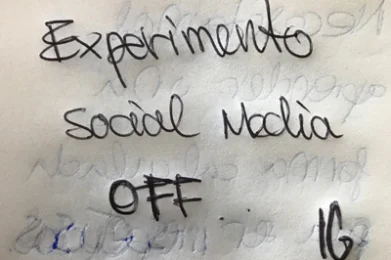 Experimento
Social Media
OFF
IG